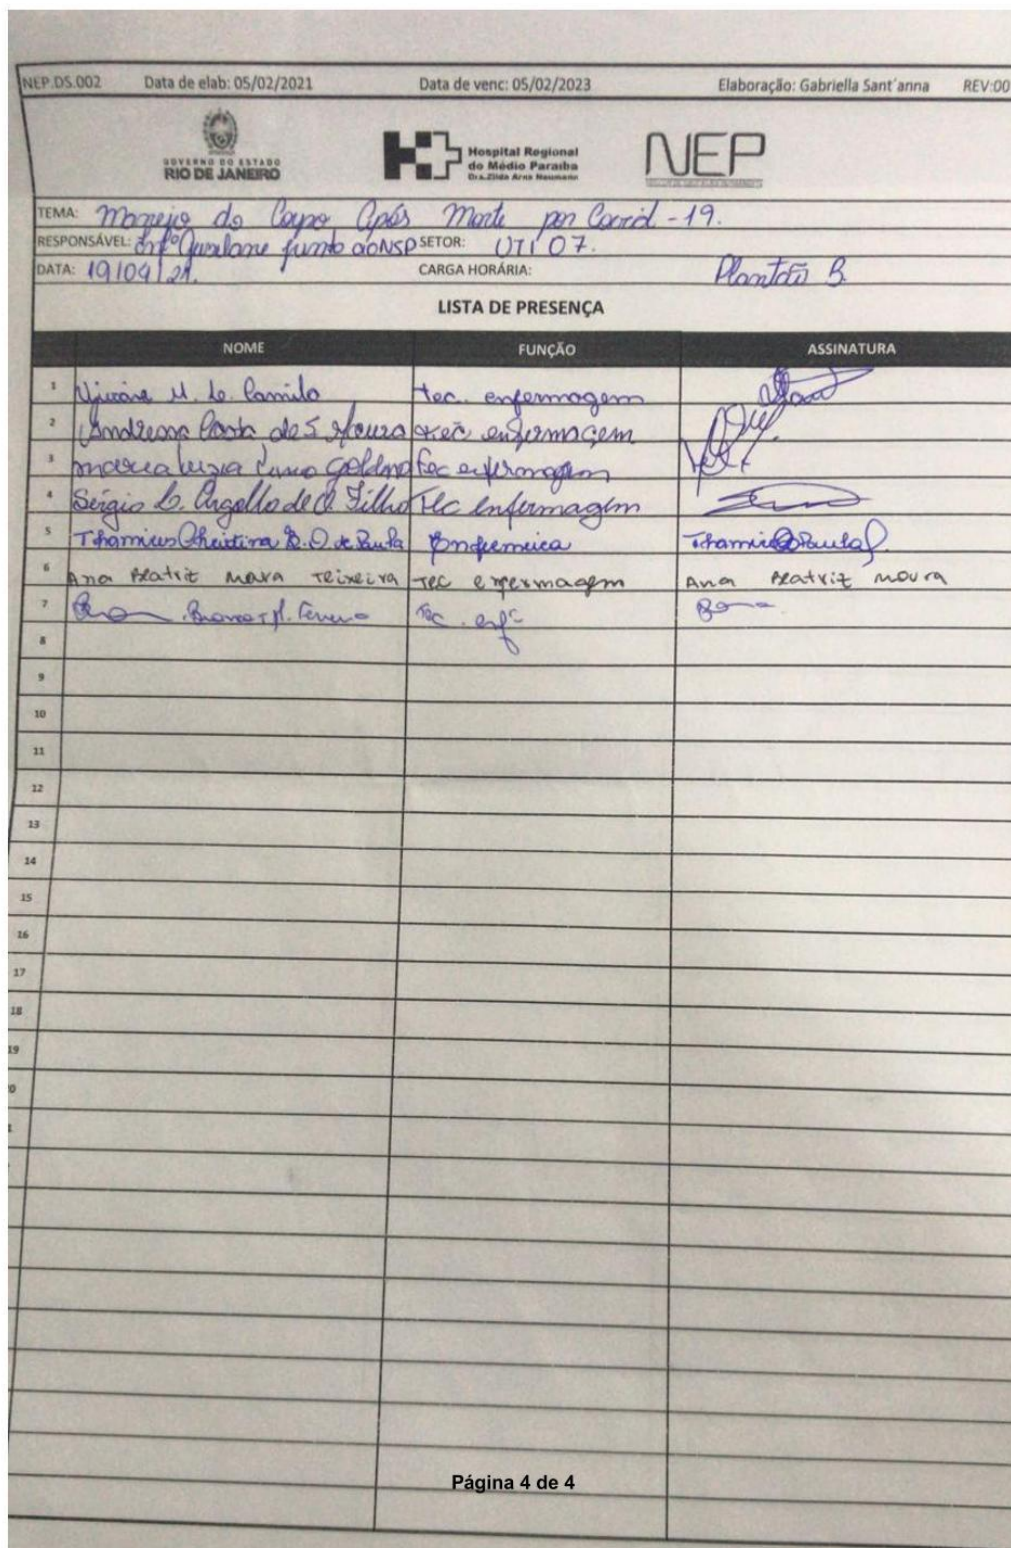 NEP.DS.002 Data de elab: 05/02/2021 Data de venc: 05/02/2023 Elaboração: Gabriella Sant´anna REV:00
GOVERNO DO ESTADO
RIO DE JANEIRO
Hospital Regional
do Médio Paraíba
Dra.Zilda Arns Neumann
NEP
TEMA: Manejo do Corpo Após Morte por Covid-19.
RESPONSÁVEL: Enfº junto ao NSP SETOR: UTI 07.
DATA: 19/04/21. CARGA HORÁRIA: Plantão B
LISTA DE PRESENÇA
NOME FUNÇÃO ASSINATURA
1 M. de Camilo tec. enfermagem
2 Andressa Costa de S Moura tec enfermagem
3 maria luzia tec enfermagem
4 Sérgio L. Argollo de O. Filho tec enfermagem
5 Christina de Paula Enfermeira
6 Ana Beatriz Mava Teixeira Tec enfermagem Ana Beatriz Moura
7 Tec. enf
8
9
10
11
12
13
14
15
16
17
18
19
Página 4 de 4